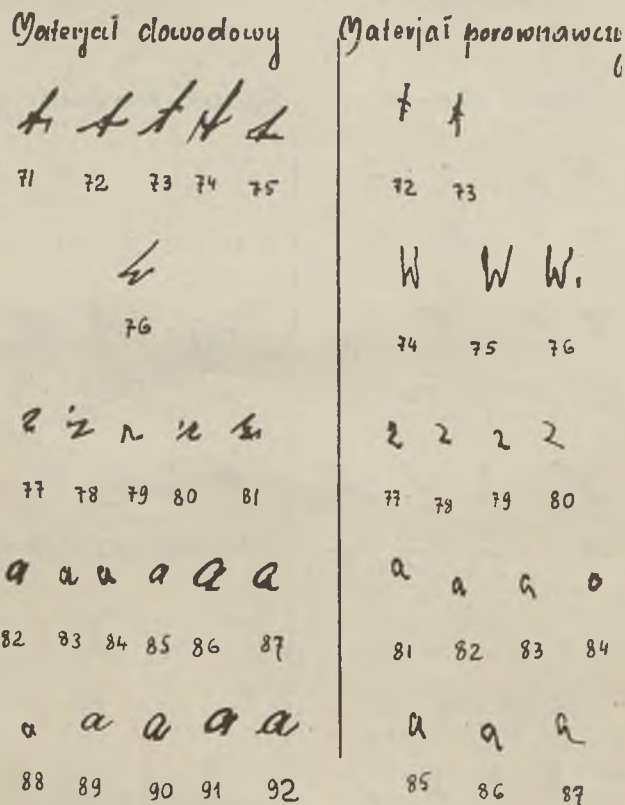 Materjał dowodowy
71 72 73 74 75
76
77 78 79 80 81
a a a a a a
82 83 84 85 86 87
a a a a a
88 89 90 91 92
Materjał porownawczy
t t
72 73
W W W.
74 75 76
2 2 2 2
77 78 79 80
a a a o
81 82 83 84
a a a
85 86 87